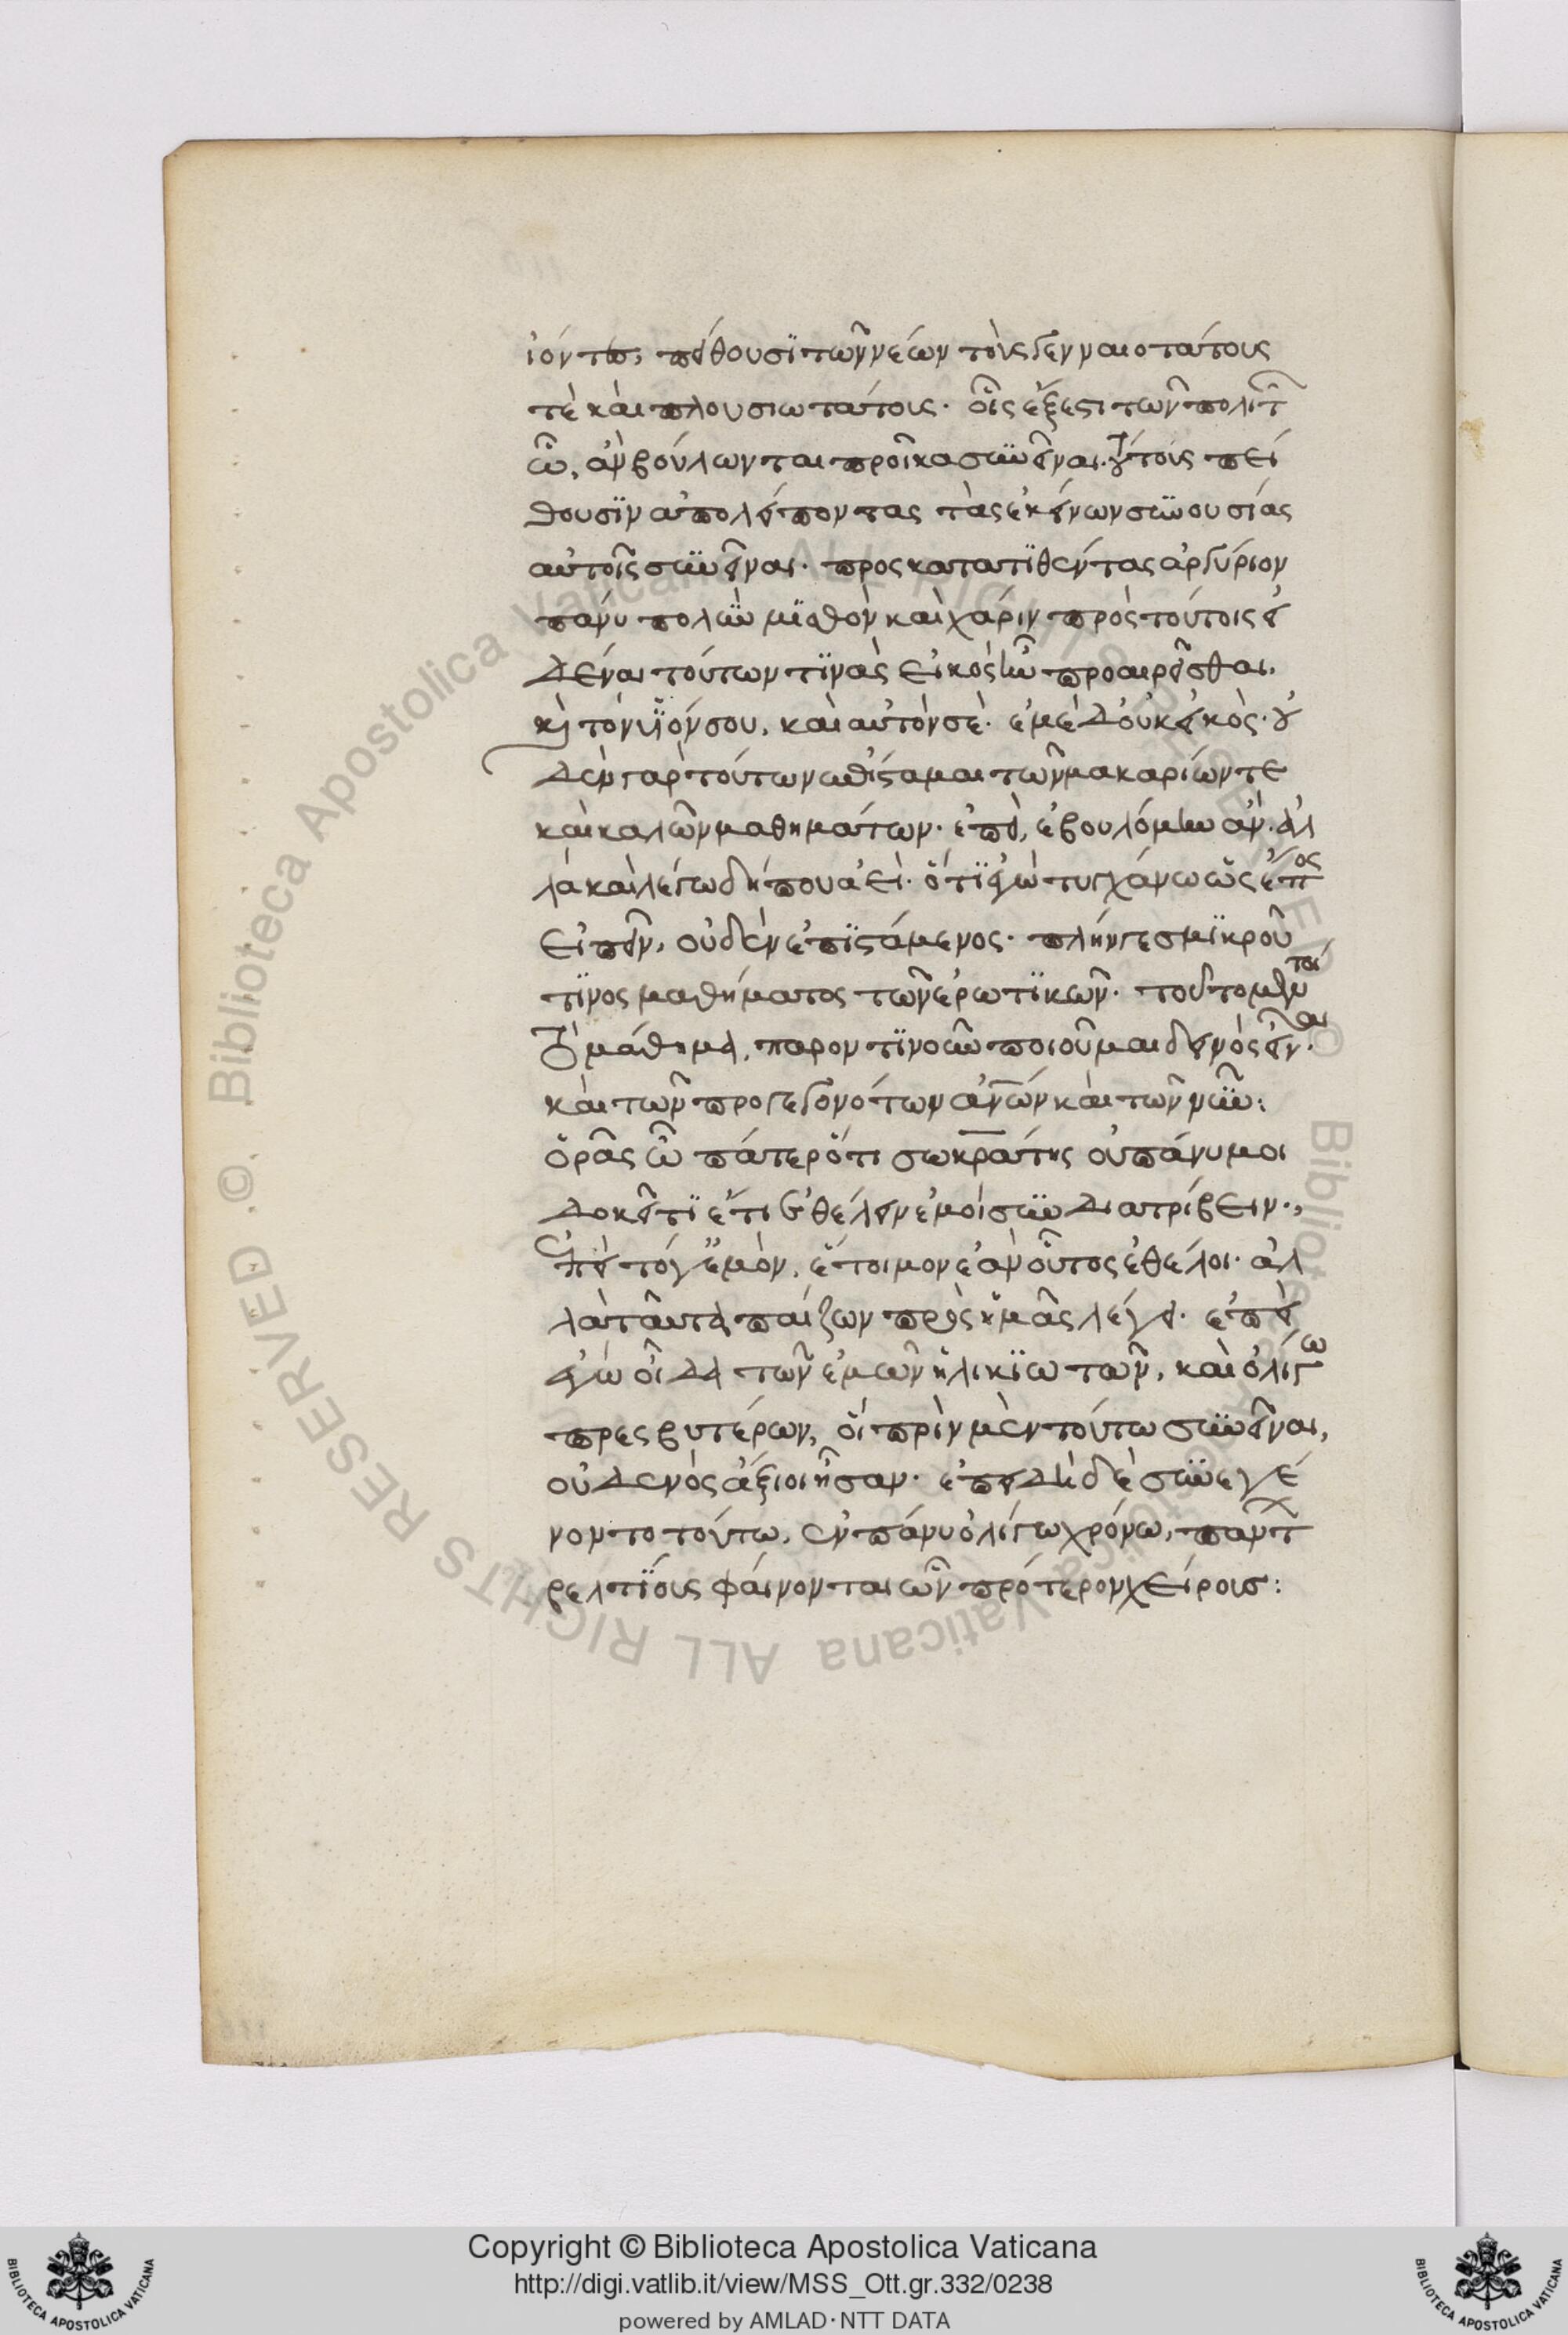 ἰόντες, πείθουσϊ τῶν νέων τοὺς γενναιοτάτους
τὲ καὶ πλουσιωτάτους. οἷς ἔξεστι τῶν πολιτ
ῶν, ἂν βούλωνται προῖκα συνεῖναι. τούτοις πεί
θουσϊν ἀπολείποντας τὰς ἐκείνων συνουσίας
αὐτοῖς συνεῖναι. προσκατατϊθέντας ἀργύριον
πάνυ πολὺν μϊσθὸν καὶ χάριν πρὸς τούτοις εἰ
δέναι τούτων τϊνὰς εἰκὸς ἦν προαιρεῖσθαι.
καὶ τὸν ὑϊόν σου, καὶ αὐτόν σὲ. ἐμὲ δ' οὐκ εἰκὸς. οὐ
δὲν γὰρ τούτων ἐπίσταμαι τῶν μακαρίων τε
καὶ καλῶν μαθημάτων. ἐπεὶ, ἐβουλόμην ἄν. ἀλ
λὰ καὶ λέγω δήπου ἀεὶ. ὅτϊ ἐγὼ τυγχάνω ὡς ἔπος
εἰπεῖν, οὐδὲν ἐπϊστάμενος. πλήν γε σμϊκροῦ
τϊνος μαθήματος τῶν ἐρωτϊκῶν. τοῦτο μέντοι
τὸ μάθημα, παρ' ὁντϊνοῦν ποιοῦμαι δεινὸς εἶναι.
καὶ τῶν προγεγονότων ἀνῶν καὶ τῶν νῦν:
ὁρᾶς ὦ πάτερ ὅτι σωκράτης οὐ πάνυ μοι
δοκεῖ τϊ ἔτι ἐθέλειν ἐμοὶ συνδιατρίβειν.,
ἐπεὶ τό γ' ἐμὸν, ἕτοιμον ἐὰν οὗτος ἐθέλοι. ἀλ
λὰ ταῦτα παίζων πρὸς ἡμᾶς λέγει. ἐπεὶ
ἐγὼ οἶδα τῶν ἐμῶν ἡλικϊωτῶν, καὶ ὀλίγω
πρεσβυτέρων, οἳ πρὶν μὲν τούτω συνεῖναι,
οὐδενὸς ἄξιοι ἦσαν. ἐπειδὴ δὲ συνεγέ
νοντο τούτω, ἐν πάνυ ὀλίγω χρόνω, πάντ
βελτϊους φαίνονται ὧν πρότερον χείρους:
© Biblioteca Apostolica Vaticana ALL RIGHTS RESERVED
Copyright © Biblioteca Apostolica Vaticana
http://digi.vatlib.it/view/MSS_Ott.gr.332/0238
powered by AMLAD·NTT DATA
BIBLIOTECA APOSTOLICA VATICANA
BIBLIOTECA APOSTOLICA VATICANA